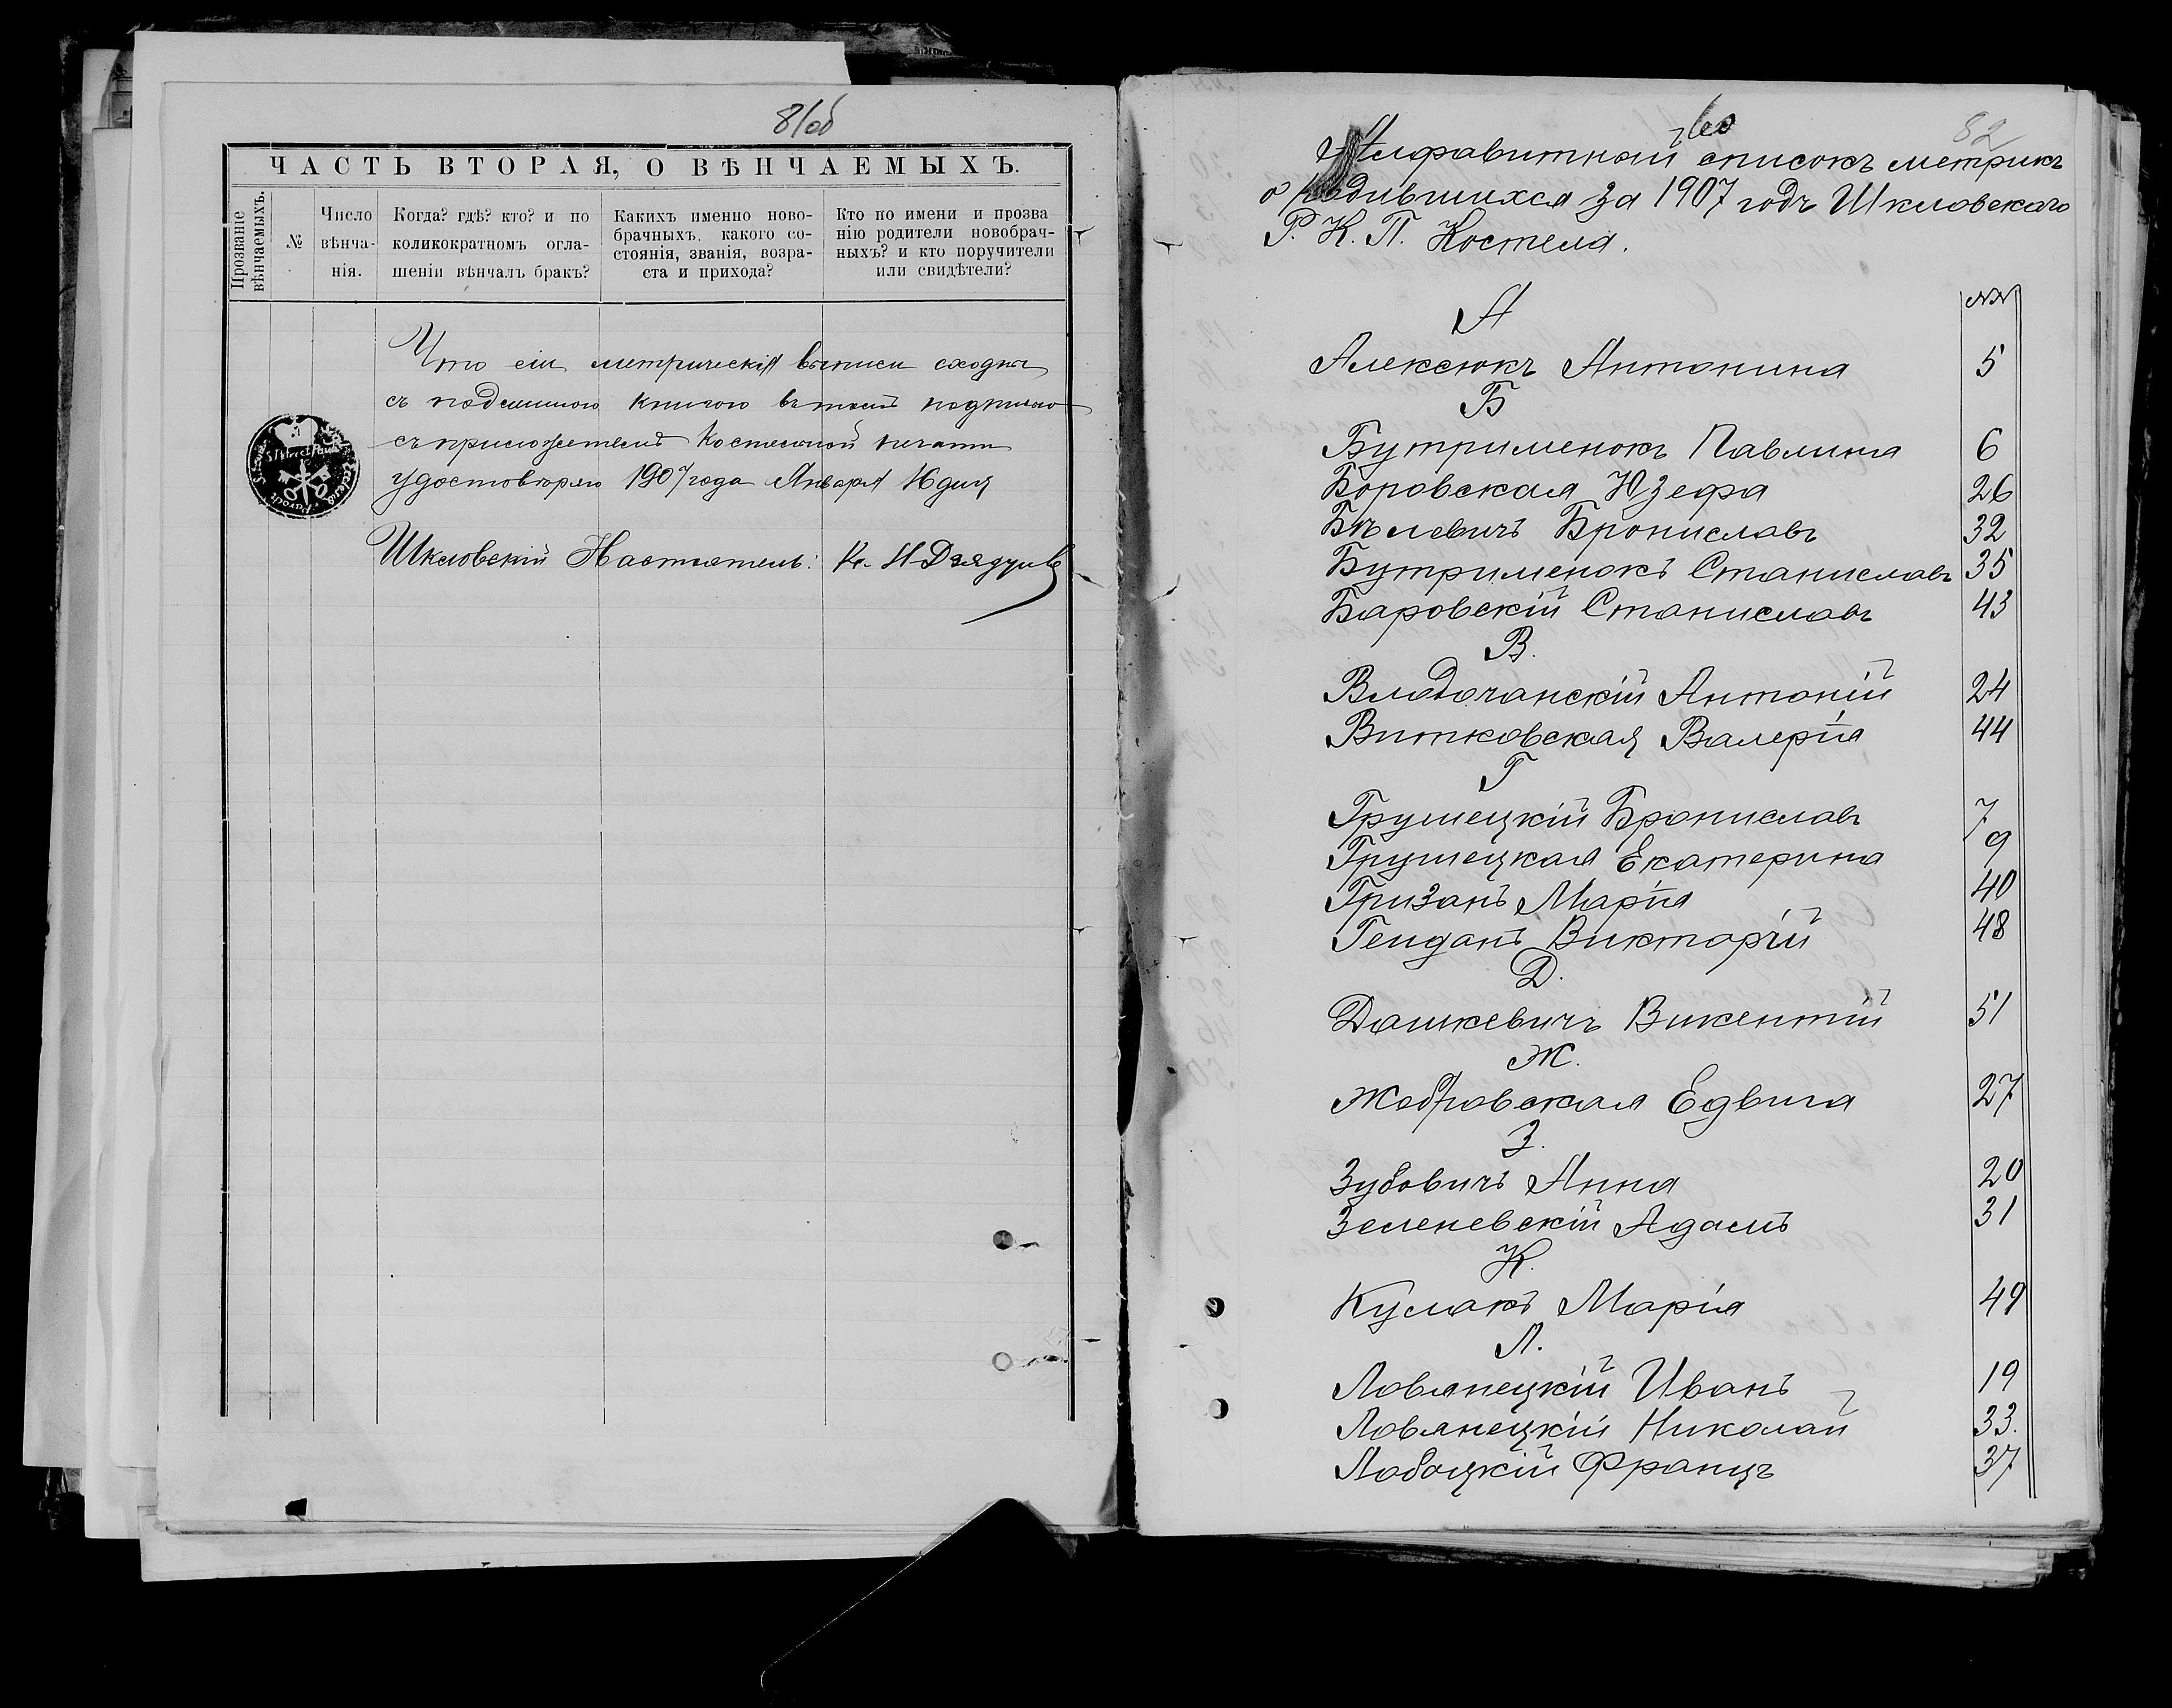 81об
ЧАСТЬ ВТОРАЯ, О ВѢНЧАЕМЫХЪ.
Прозваніе вѣнчаемыхъ.
№
Число
вѣнча-
нія.
Когда? гдѣ? кто? и по
коликократномъ огла-
шеніи вѣнчалъ бракъ?
Какихъ именно ново-
брачныхъ, какого со-
стоянія, званія, возра-
ста и прихода?
Кто по имени и прозва
нію родители новобрач-
ныхъ? и кто поручители
или свидѣтели?
Что сіи метрическія выписи сходны
съ подлинною книгою въ томъ подписью
съ приложеніемъ Костельной печати
удостовѣряю 1907 года Января 16 дня
Шкловскій Настоятель: Кс.
82
Алфавитный списокъ метрикъ
о родившихся за 1907 годъ Шкловскаго
Р. К. П. Костела.
NN
А
Алексюкъ Антонина 5
Б
Бутрименокъ Павлина 6
Боровская Юзефа 26
Бѣлевичъ Брониславъ 32
Бутрименокъ Станиславъ 35
Баровскій Станиславъ 43
В.
Влодочанскій Антоній 24
Витковская Валерія 44
Г
Грушецкій Брониславъ 7
Грушецкая Екатерина 9
Гризанъ Марія 40
Генданъ Викторій 48
Д.
Дашкевичъ Викентій 51
Ж.
Жобровская Едвига 27
З.
Зубовичъ Анна 20
Зеленевскій Адамъ 31
К.
Кулакъ Марія 49
Л.
Ловянецкій Иванъ 19
Ловянецкій Николай 33.
Лобоцкій Францъ 37